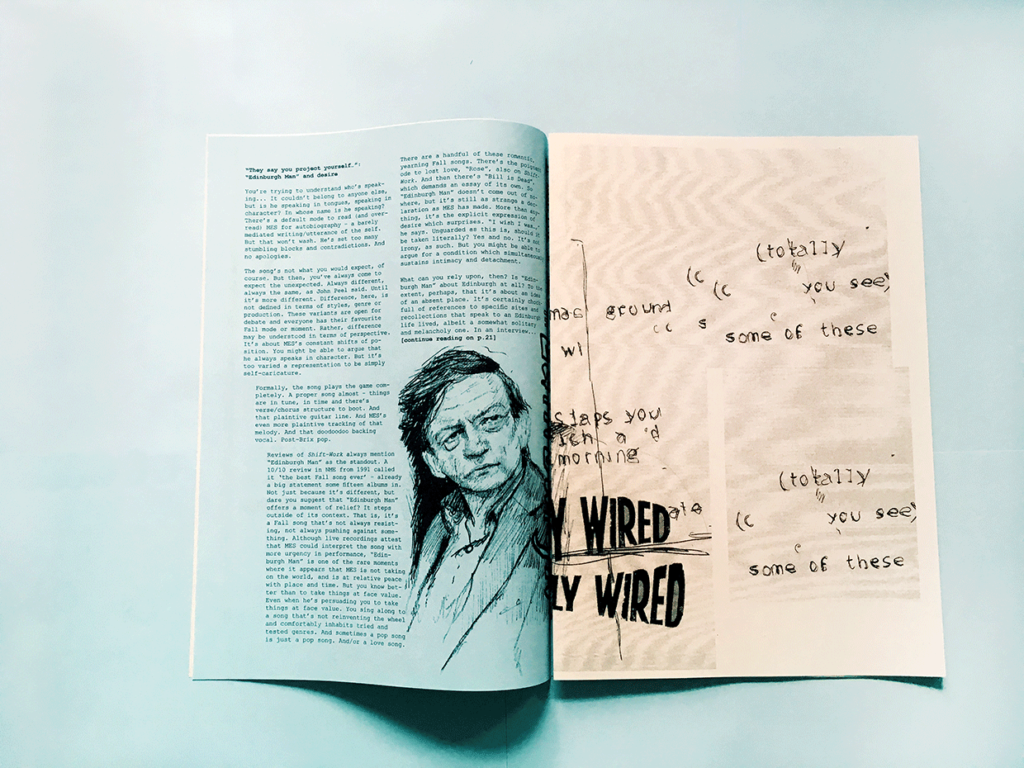 "They say you project yourself.":
"Edinburgh Man" and desire
You're trying to understand who's speak-
ing... It couldn't belong to anyone else,
but is he speaking in tongues, speaking in
character? In whose name is he speaking?
There's a default mode to read (and over-
read) MES for autobiography - a barely
mediated writing/utterance of the self.
But that won't wash. He's set too many
stumbling blocks and contradictions. And
no apologies.
The song's not what you would expect, of
course. But then, you've always come to
expect the unexpected. Always different,
always the same, as John Peel said. Until
it's more different. Difference, here, is
not defined in terms of styles, genre or
production. These variants are open for
debate and everyone has their favourite
Fall mode or moment. Rather, difference
may be understood in terms of perspective.
It's about MES's constant shifts of po-
sition. You might be able to argue that
he always speaks in character. But it's
too varied a representation to be simply
self-caricature.
Formally, the song plays the game com-
pletely. A proper song almost - things
are in tune, in time and there's
verse/chorus structure to boot. And
that plaintive guitar line. And MES's
even more plaintive tracking of that
melody. And that doodoodoo backing
vocal. Post-Brix pop.
Reviews of Shift-Work always mention
"Edinburgh Man" as the standout. A
10/10 review in NME from 1991 called
it 'the best Fall song ever' - already
a big statement some fifteen albums in.
Not just because it's different, but
dare you suggest that "Edinburgh Man"
offers a moment of relief? It steps
outside of its context. That is, it's
a Fall song that's not always resist-
ing, not always pushing against some-
thing. Although live recordings attest
that MES could interpret the song with
more urgency in performance, "Edin-
burgh Man" is one of the rare moments
where it appears that MES is not taking
on the world, and is at relative peace
with place and time. But you know bet-
ter than to take things at face value.
Even when he's persuading you to take
things at face value. You sing along to
a song that's not reinventing the wheel
and comfortably inhabits tried and
tested genres. And sometimes a pop song
is just a pop song. And/or a love song.
There are a handful of these romantic,
yearning Fall songs. There's the poignant
ode to lost love, "Rose", also on Shift-
Work. And then there's "Bill is Dead",
which demands an essay of its own. So
"Edinburgh Man" doesn't come out of no-
where, but it's still as strange a dec-
laration as MES has made. More than any-
thing, it's the explicit expression of
desire which surprises. "I wish I was,"
he says. Unguarded as this is, should it
be taken literally? Yes and no. It's not
irony, as such. But you might be able to
argue for a condition which simultaneously
sustains intimacy and detachment.
What can you rely upon, then? Is "Edin-
burgh Man" about Edinburgh at all? To the
extent, perhaps, that it's about an idea
of an absent place. It's certainly chock-
full of references to specific sites and
recollections that speak to an Edinburgh
life lived, albeit a somewhat solitary
and melancholy one. In an interview...
[continue reading on p.21]
(totally
(c (c you see)
mac ground
cc s some of these
wi
staps you
ich a 'd
morning
(totally
(c you see)
some of these
Y WIRED
LY WIRED